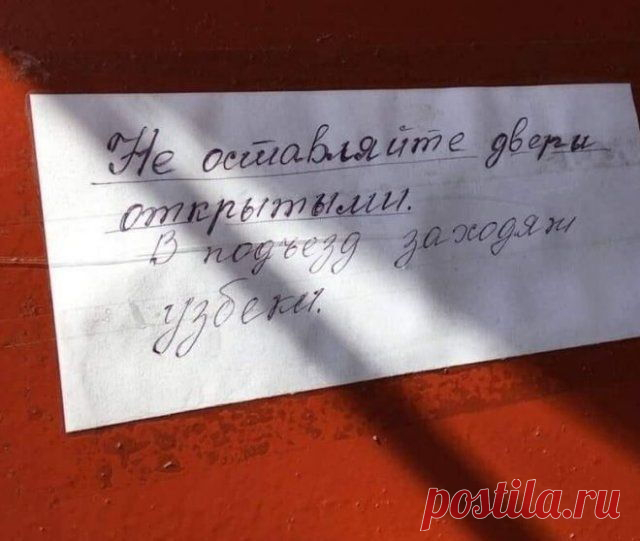 Не оставляйте двери
открытыми.
В подъезд заходят
узбеки.
postila.ru